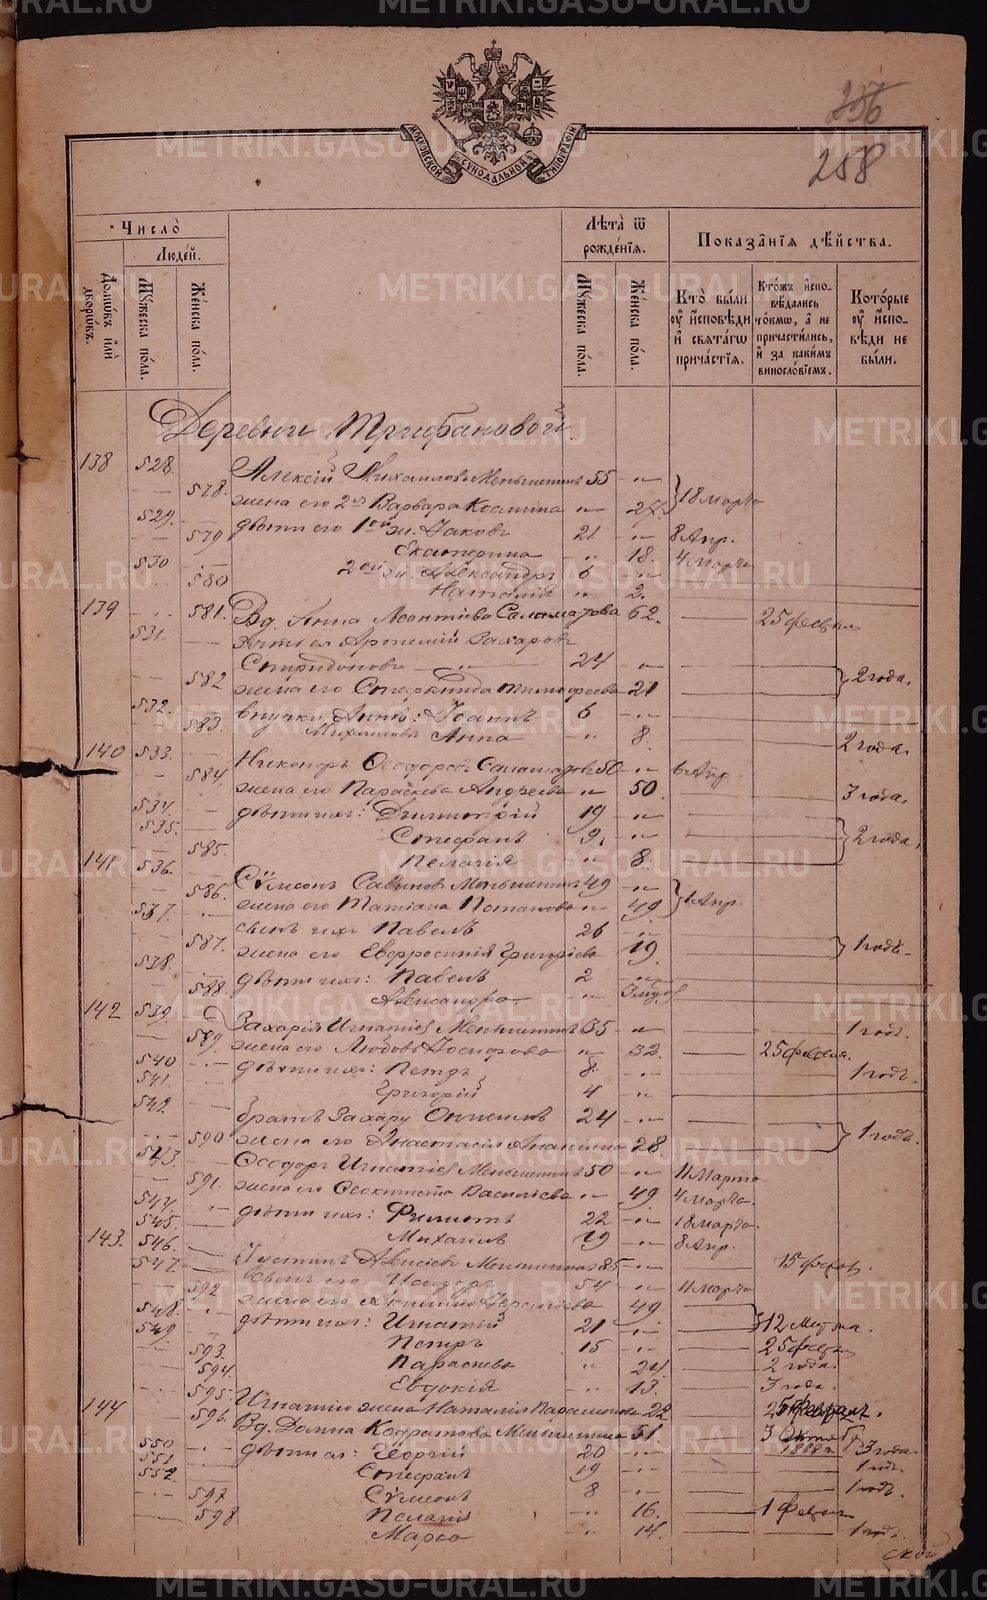 256
258
МОСКОВСКОЙ СѴНОДАЛЬНОЙ ТИПОГРАФІИ
Число̀
Людей.
Домѡвъ или дворѡвъ.
Мꙋжеска пола.
Женска пола.
Лѣта ѿ рожденїѧ.
Мꙋжеска пола.
Женска пола.
Показанїѧ дѣйства.
Кто были ᲂу исповѣди и свѧтагѡ причастїѧ.
Ктожъ исповѣдались токмѡ, а не причастились, и за какимъ винословїемъ.
Которые ᲂу исповѣди не были.
Деревни Трифановой
138 528. Алексій Михаиловъ Меньшенинъ 55 -"-
578. жена его 2я Варвара Космина " 27. 18 Марта
529. дѣти его 1ой ж. Іаковъ 21 -"- 8 Апр.
579 Екатерина " 18. 4 Марта
530 2ой ж. Александръ 6 -"-
580 Наталія " 2.
139 581. Вд. Анна Леонтіева Саламатова 62. 25 феврал
531. зять ея Артемій Захаровъ
Спиридоновъ 24 -"-
582 жена его Стефанида Тимофеева 21 2 года.
532. внучки Анны: Іоаннъ 6 -"-
583. Михаиловъ Анна " 8. 2 года.
140 533. Никоноръ Ѳеодоровъ Саламатовъ 50 -"- 6 Апр.
584. жена его Параскева Андреева " 50. 3 года.
534. дѣти ихъ: Димитрій 19 -"-
535. Стефанъ 9. -"- 2 года,
585. Пелагія " 8.
141 536. Сѵмеонъ Савиновъ Меньшенинъ 49 -"-
586. жена его Татіана Потапова " 49 6 Апр.
537. сынъ ихъ Павелъ 26 -"-
587. жена его Евфросинія Григоріева 19 1 годъ.
538. дѣти ихъ: Павелъ 2 -"-
588. Александра "
142 539. Захарій Игнатіевъ Меньшенинъ 35 -"- 1 годъ.
589. жена его Любовь Іосифова " 32. 25 феврал.
540 дѣти ихъ: Петръ 8. -"- 1 годъ.
541. Григорій 4 -"-
542. братъ Захару 24 -"-
590 жена его Анастасія Ананіина 28. 1 годъ.
543. Ѳеодоръ Игнатіевъ Меньшенинъ 50 -"- 11 Марта
591. жена его Ѳеоктиста Василіева " 49 4 Марта.
544. дѣти ихъ: Филиппъ 22 -"- 18 Марта.
545. Михаилъ 19 -"- 8 Апр.
143. 546. Іустинъ Алексіевъ Меньшенинъ 85 15 февр.
547. сынъ его Исидоръ 54 -"- 11 Марта
592 жена его Акилина Іереміева 49
548. дѣти ихъ: Игнатій 21 -"- 12 Марта.
549. Петръ 15 -"- 25 феврал
593. Параскева " 24 2 года.
594. Евдокія " 13. 3 года.
595. Игнатія жена Наталія Парамонова 22 25 феврал.
144 596. Вд. Домна Кодратова Меньшенина 51. 3 Октября 1888 г.
550 дѣти ея: Георгій 20 -"- 3 года.
551 Стефанъ 19 -"- 1 годъ.
552 Сѵмеонъ 8 -"- 1 годъ.
597 Пелагія " 16. 1 феврал
598 Марѳа " 14. 1 годъ.
ской
METRIKI.GASO-URAL.RU